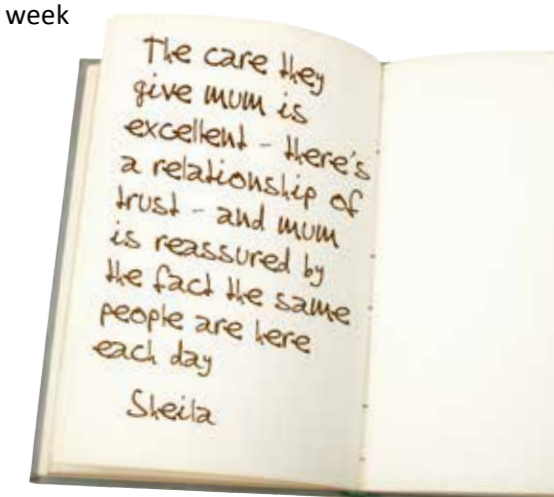 week
The care they
give mum is
excellent - there's
a relationship of
trust - and mum
is reassured by
the fact the same
people are here
each day
Sheila